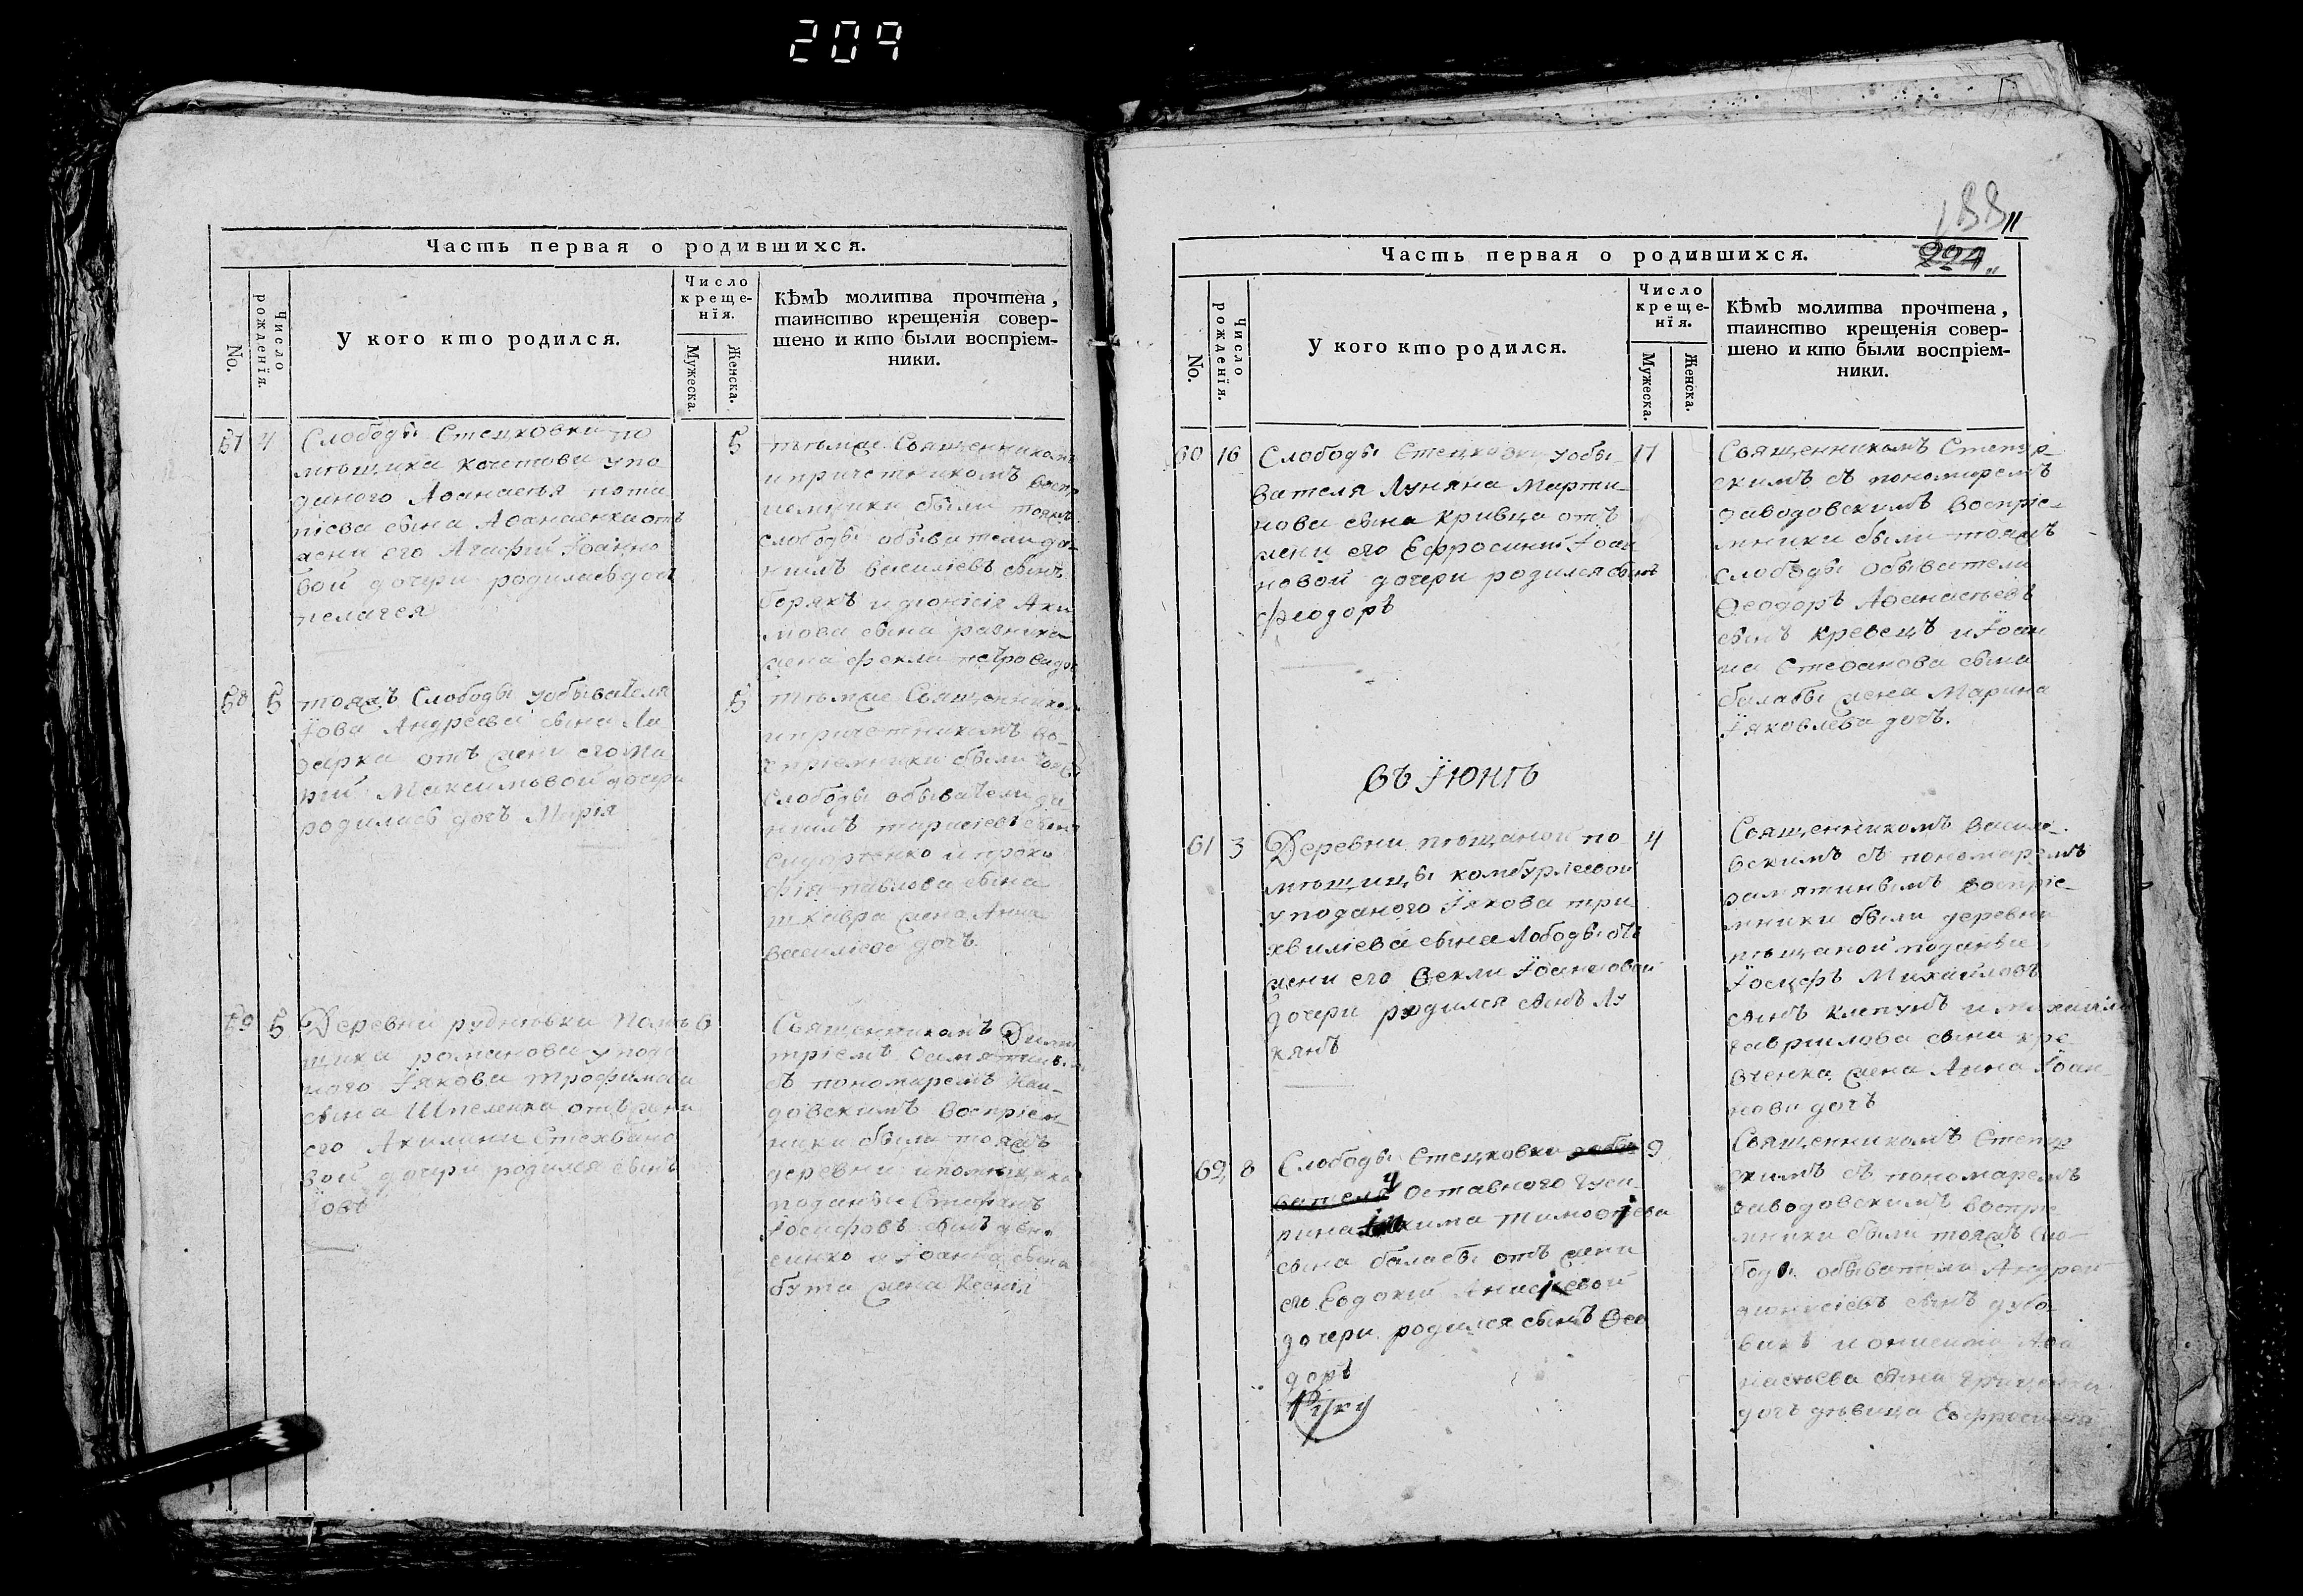 209
Часть первая о родившихся.
No.
Число рожденїя.
У кого кто родился.
Число
креще-
нїя.
Мужеска.
Женска.
Кѣмъ молитва прочтена,
таинство крещенія совер-
шено и кто были воспріем-
ники.
57 4 Слободы Стецковки по
мѣщика кочетова упо
даного Аѳанасія пота
піева сына Аѳанасенка отъ
жены его Агафіи Їоанно
вой дочери родилась доч
пелагея
5
тѣмже Священникомъ
и причетникомъ воспр
иемники были тояжъ
слободы обыватели да-
нилъ василіевъ сынъ
и діонісія Аки
мова сына
жена фекла петрова доч
58 5 тояжъ Слободы уобывателя
Їова Андреева сына Ла
зарка отъ жены его Ма
ріи Максимовой дочери
родилась дочъ Марія
5
тѣмже Священникомъ
и причетникомъ во-
спріемники были тояжъ
слободы обыватели да
нилъ тарасіевъ сынъ
Сидорченко и проко
фія павлова сына
шкавра жена Анна
василіева дочъ.
59 5 Деревни руднѣвки Помѣ
щика романова упода
ного Їякова трофимова
сына Шпеленка отъ жены
его Акилины Стехвано
вой дочери родился сынъ
Їовъ
6
Священникомъ Дими
тріемъ
съ пономаремъ
довскимъ воспріем-
ники были тояжъ
деревни и помѣщика
поданые Стефанъ
Їосифовъ сынъ
и Їоанна сына
бута жена Ксенія
188
224
Часть первая о родившихся.
No.
Число рожденїя.
У кого кто родился.
Число
креще-
нїя.
Мужеска.
Женска.
Кѣмъ молитва прочтена,
таинство крещенія совер-
шено и кто были воспріем-
ники.
60 16 Слободы Стецковки уобы
вателя Лукяна Марти
нова сына Кривца отъ
жены его Ефросиніи Їоан
новой дочери родился сынъ
феодоръ
17
Священникомъ Степур
скимъ съ пономаремъ
заводовскимъ воспріе-
мники были тояжъ
слободы обыватели
Ѳеодоръ Аѳанасьевъ
сынъ кревецъ и Їоан
на Стефанова сына
балабы жена Марина
Їяковлева дочъ.
Въ Їюнѣ
61 3 Деревни пѣщаной по
мѣщицы комбурліевой
уподаного Їякова три
хвиліева сына Лободы отъ
жены его Ѳекли Їоанновой
дочери родился сынъ Лу
кянъ
4
Священникомъ васил-
вскимъ съ пономаремъ
замятинымъ воспріе-
мники были деревни
пѣщаной поданые
Їосифъ Михайловъ
сынъ клепунъ и михаила
гаврилова сына кре
вченка жена Анна Їоан-
нова дочъ
62 8 Слободы Стецковки уобы
вателя Оставного гуса
рина Якима Тимоѳѣева
сына балабы отъ жены
его Евдокіи Анисіевой
дочери родился сынъ Ѳео
доръ
9
Священникомъ Степур
скимъ съ пономаремъ
заводовскимъ воспріе
мники были тояжъ сло-
боды обыватели Андрей
діонисіевъ сынъ дубо
викъ и онисима Аѳа
насьева сына
дочъ дѣвица Ефросинія